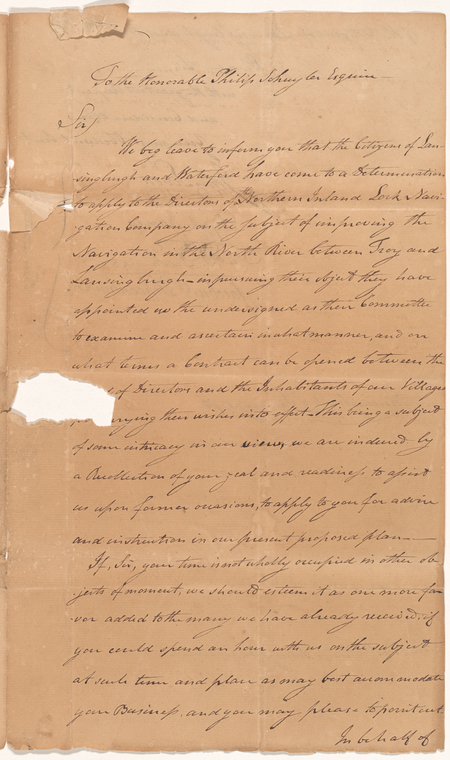 To the Honorable Philip Schuyler Esquire
Sir
We beg leave to inform you that the Citizens of Lan-
singburgh and Waterford have come to a Determination
to apply to the Directors of Northern Inland Lock Navi-
gation Company on the subject of improving the
Navigation in the North River between Troy and
Lansingburgh – in pursuing their object they have
appointed us the undersigned as their Committee
to examine and ascertain in what manner, and on
what terms a Contract can be opened between the
of Directors and the Inhabitants of our Villages
carrying their wishes into effect – This being a subject
of some intricacy in our view, we are induced by
a Recollection of your zeal and readiness to assist
us upon former occasions, to apply to you for advice
and instruction in our present proposed plan —
If, Sir, your time is not wholly occupied in other ob-
jects of moment, we should esteem it as one more fa-
vor added to the many we have already received, if
you could spend an hour with us on the subject
at such time and place as may best accommodate
your Business, and you may please to point out.
In behalf of